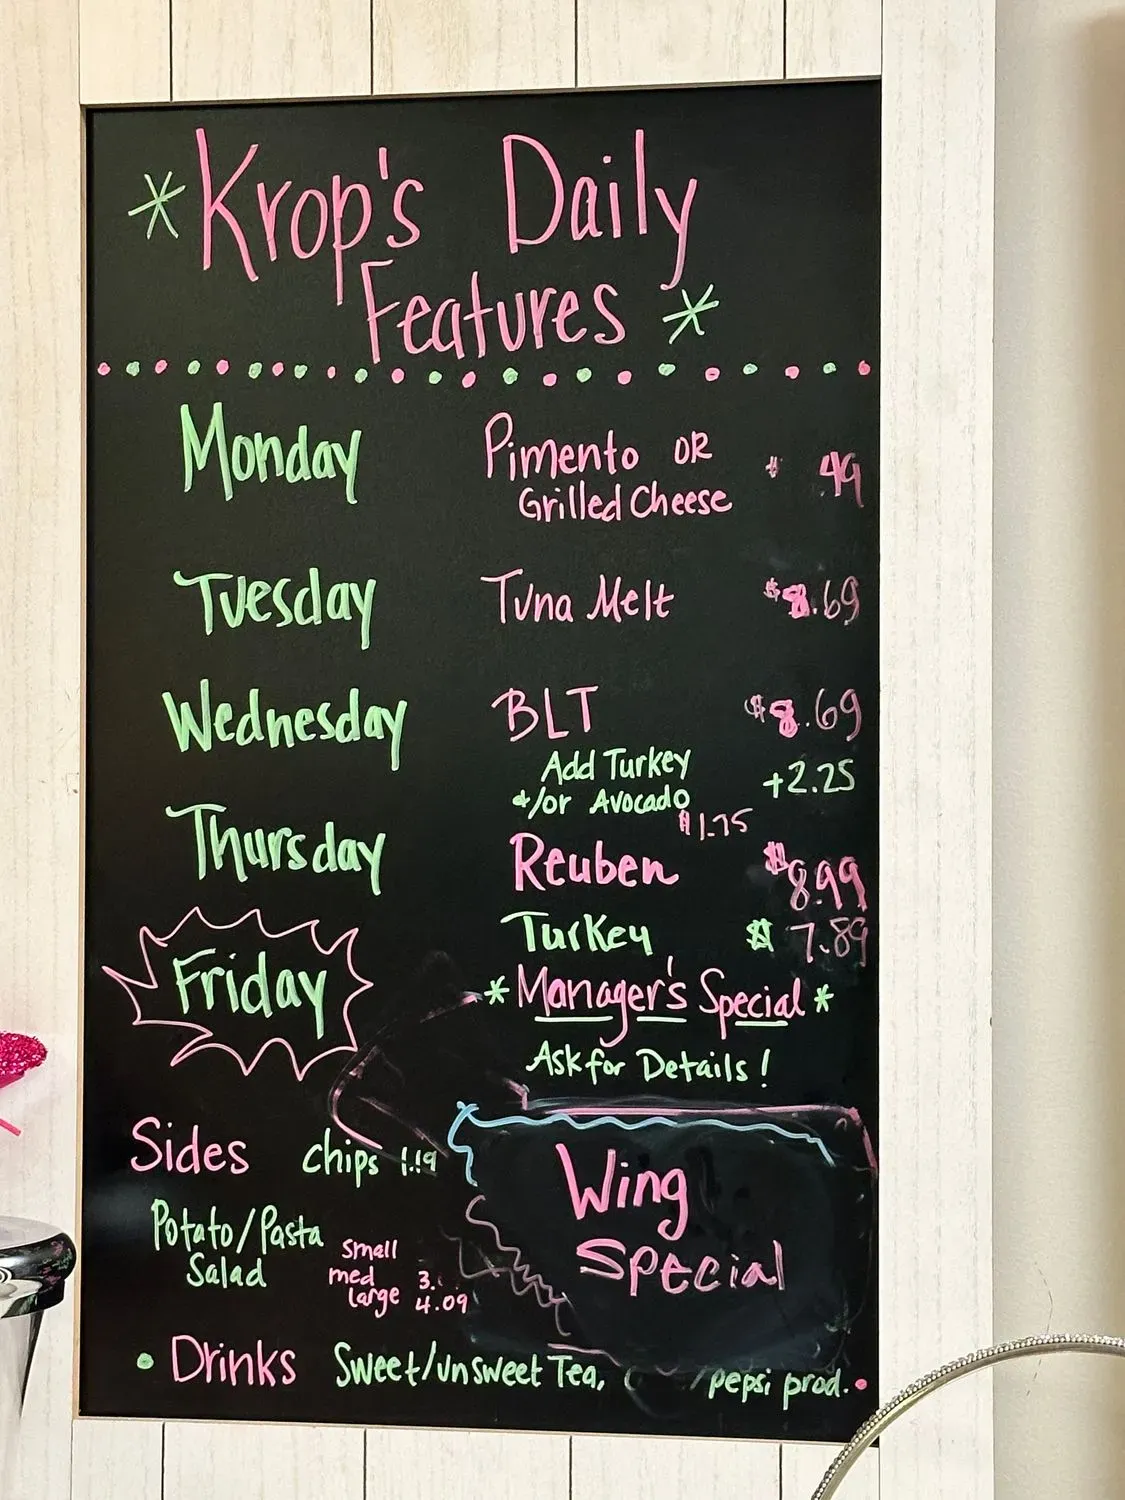 *Krop's Daily
Features *
Monday Pimento OR $ .49
Grilled Cheese
Tuesday Tuna Melt $8.69
Wednesday BLT $8.69
Add Turkey +2.25
&/or Avocado
$1.75
Thursday Reuben $8.99
Turkey $7.89
Friday *Manager's Special*
Ask for Details!
Sides chips 1.19
Potato/Pasta
Salad
small
med 3.
large 4.09
Wing
Special
• Drinks Sweet/unsweet Tea, pepsi prod. •